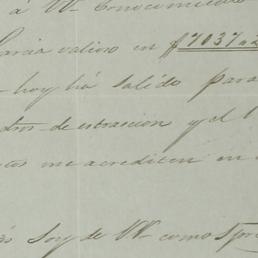 á VV conocimiento
García valioso en $7037
hoy há salido para
de estraccion y el
me acrediten en
Soy de VV como